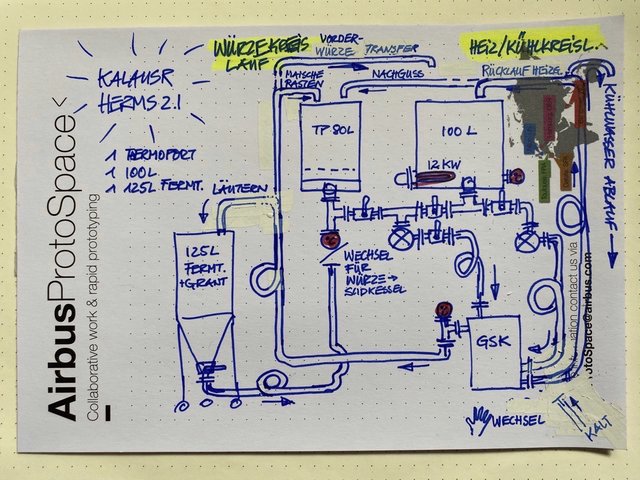 WÜRZEKREIS
LAUF
VORDER-
WÜRZE TRANSFER
HEIZ/KÜHLKREISL.
KALAUSR
HERMS 2.1
1 THERMOPORT
1 100L
1 125L FERMT.
MAISCHE
RASTEN
NACHGUSS
RÜCKLAUF HEIZG.
KÜHLWASSER ABLAUF →
TP 80L
100 L
12 KW
LÄUTERN
125L
FERMT.
+GRANT
WECHSEL
FÜR
WÜRZE →
SUDKESSEL
GSK
WECHSEL
KALT
AirbusProtoSpace
Collaborative work & rapid prototyping
contact us via
rotoSpace@airbus.com